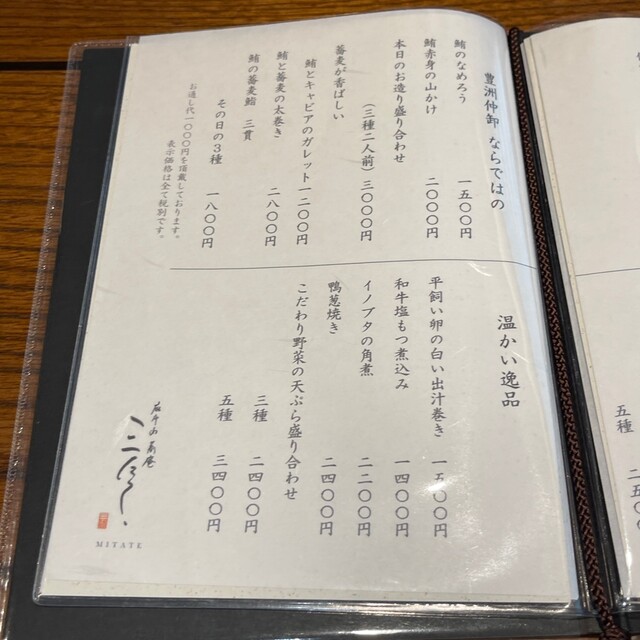 豊洲仲卸 ならではの
鮪のなめろう 一五〇〇円
鮪赤身の山かけ 二〇〇〇円
本日のお造り盛り合わせ
(三種二人前) 三〇〇〇円
蕎麦が香ばしい
鮪とキャビアのガレット 一二〇〇円
鮪と蕎麦の太巻き 二八〇〇円
鮪の蕎麦鮨 三貫
その日の3種 一八〇〇円
お通し代一〇〇〇円を頂戴しております。
表示価格は全て税別です。
温かい逸品
平飼い卵の白い出汁巻き 一五〇〇円
和牛塩もつ煮込み 一四〇〇円
イノブタの角煮 二二〇〇円
鴨葱焼き 二四〇〇円
こだわり野菜の天ぷら盛り合わせ
三種 二四〇〇円
五種 三四〇〇円
MITATE
五種 二五〇